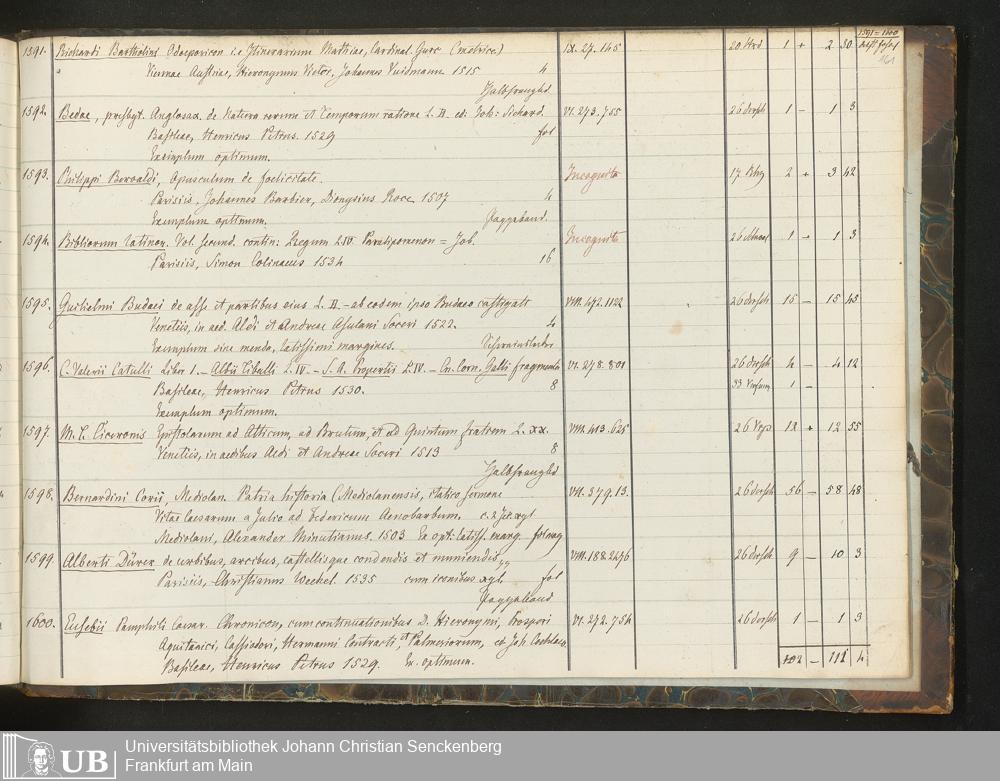 1591=1600
161
1591. Richardi Bartholini Odoeporicon i.e. Itinerarium Mathiae, Cardinal. Gurc (metrice.) IX. 27. 145 1 + 2 30
Viennae Austriae, Hieronymus Vietor, Johannes 1515 4
Halbfranzbd
1592. Bedae, presbyt. Anglosax. de Natura rerum et Temporum ratione L. II. ed: Joh: Sichard. VI. 273. 755 26 1 – 1 3
Basileae, Henricus Petrus. 1529 fol
Exemplum optimum.
1593. Philippi Beroaldi, Opusculum de foelicitate. Incognito 17 2 + 3 42
Parisiis. Johannes Barbier, Dionysius Roce 1507 4
Exemplum optimum. Pappeband
1594. Bibliorum latinor. Vol. secund. contin: Regum L IV. Paralipomenon = Job. Incognito 26 1 – 1 3
Parisiis, Simon Colinaeus 1534 16
1595. Guilielmi Budaei de asse et partibus eius L. II. – ab eodem ipso Budaeo castigati VIII. 472. 1122 26 15 – 15 45
Venetiis, in aed. Aldi et Andreae Asulani Soceri 1522. 4
Exemplum sine menda, latissimi margines. Schweinsleder
1596. C. Valerii Catulli Liber 1. – Albii Tibulli L. IV. – S. A. Propertii L IV. – Cn. Corn. Galli fragmenta VI. 278. 801 26 4 – 4 12
Basileae, Henricus Petrus 1530. 8 33 1 –
Exemplum optimum.
1597. M. T. Ciceronis Epistolarum ad Atticum, ad Brutum, et ad Quintum fratrem L. XX. VIII. 413. 625 26 12 + 12 55
Venetiis, in aedibus Aldi et Andreae Soceri 1513 8
Halbfranzbd
1598. Bernardini Corii, Mediolan. Patria historia (Mediolanensis, italico sermone VII. 379. 13. 26 56 – 58 48
Vitae Caesarum a Julio ad Federicum Aenobarbum. c. 2 xyl
Mediolani, Alexander Minutianus. 1503 Ex. opt. latiss. marg. fol
1599. Alberti Dürer de urbibus, arcibus, castellisque condendis et muniendis VIII. 188. 2476 26 9 – 10 3
Parisiis, Christianus Wechel. 1535 cum iconibus xyl. fol
Pappeband
1600. Eusebii Pamphili Caesar. Chronicon, cum continuationibus D. Hieronymi, Prosperi VI. 272. 754 26 1 – 1 3
Aquitanici, Cassiodori, Hermanni Contracti, et Palmeriorum, ed. Joh
Basileae, Henricus Petrus 1529. Ex. optimum.
102 – 111 4
UB
Universitätsbibliothek Johann Christian Senckenberg
Frankfurt am Main